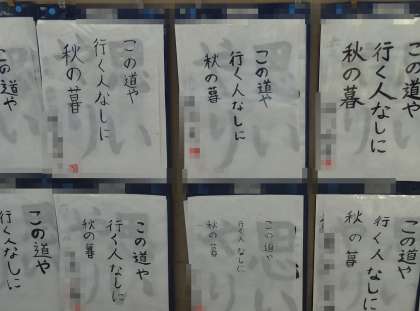 この道や
行く人なしに
秋の暮
この道や
行く人なしに
秋の暮
この道や
行く人なしに
秋の暮
この道や
この道や
行く人なしに
秋の暮
この道や
行く人なしに
秋の暮
この道や
行く人なしに
秋の暮
この道や
行く人なしに